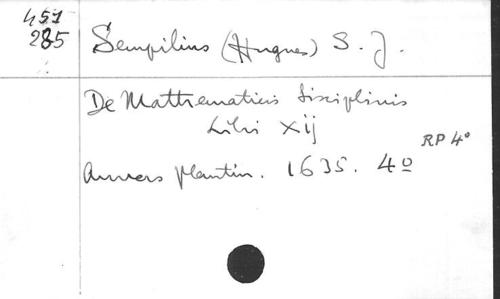 451
285
Sempilius (Hugues) S. J.
De Mathematicis disciplinis
Libri Xij
RP 4°
Anvers Plantin. 1635. 4º